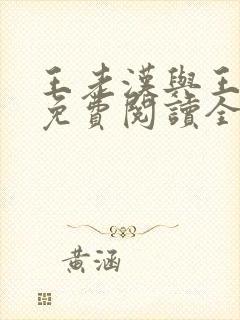 王老漢與王
免費閱讀全
黃涵